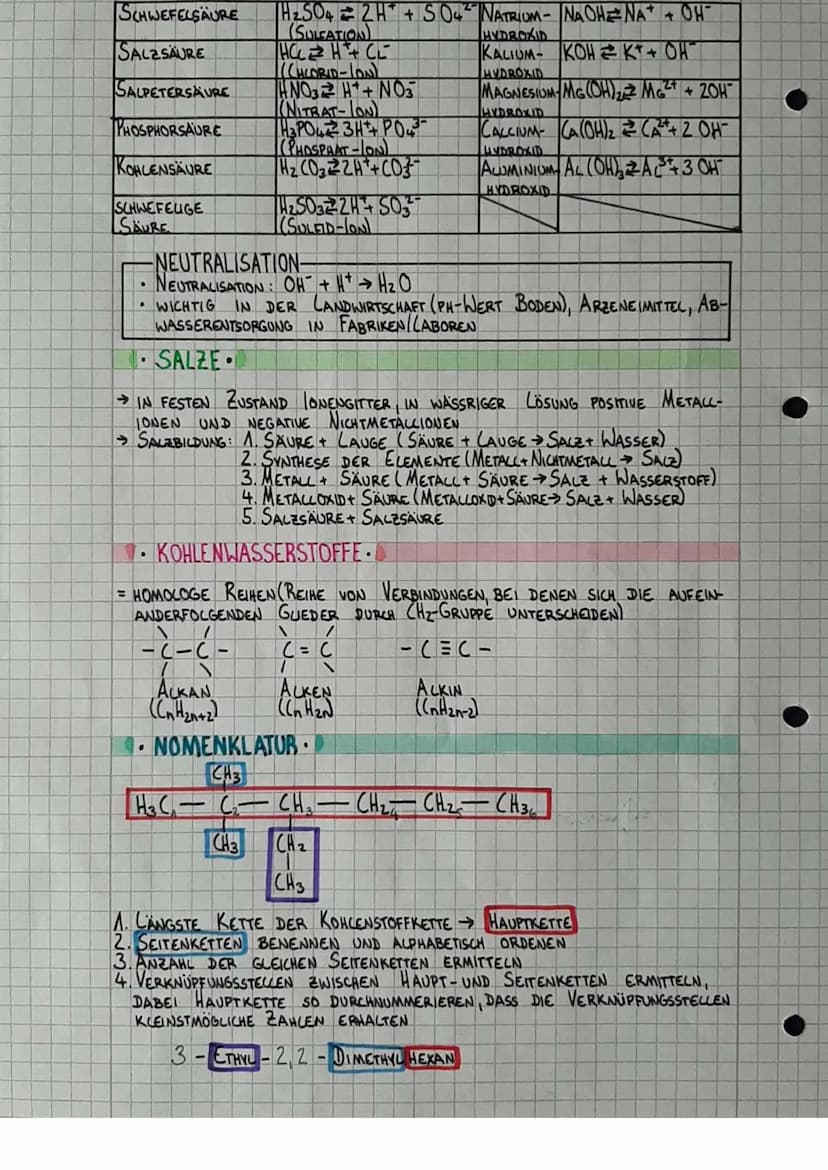 SCHWEFELSÄURE H₂SO₄ ⇄ 2H⁺ + SO₄²⁻ NATRIUM- NaOH ⇄ Na⁺ + OH⁻
(SULFATION) HYDROXID
SALZSÄURE HCL ⇄ H⁺ + CL⁻ KALIUM- KOH ⇄ K⁺ + OH⁻
(CHLORID-ION) HYDROXID
SALPETERSÄURE HNO₃ ⇄ H⁺ + NO₃⁻ MAGNESIUM- MG(OH)₂ ⇄ MG²⁺ + 2OH⁻
(NITRAT-ION) HYDROXID
PHOSPHORSÄURE H₃PO₄ ⇄ 3H⁺ + PO₄³⁻ CALCIUM- CA(OH)₂ ⇄ CA²⁺ + 2 OH⁻
(PHOSPHAT-ION) HYDROXID
KOHLENSÄURE H₂CO₃ ⇄ 2H⁺ + CO₃²⁻ ALUMINIUM- AL(OH)₃ ⇄ AL³⁺ + 3 OH⁻
HYDROXID
SCHWEFELIGE H₂SO₃ ⇄ 2H⁺ + SO₃²⁻
SÄURE (SULFID-ION)
NEUTRALISATION
• NEUTRALISATION: OH⁻ + H⁺ → H₂O
• WICHTIG IN DER LANDWIRTSCHAFT (PH-WERT BODEN), ARZENEIMITTEL, AB-
WASSERENTSORGUNG IN FABRIKEN/LABOREN
• SALZE •
→ IN FESTEN ZUSTAND IONENGITTER, IN WÄSSRIGER LÖSUNG POSITIVE METALL-
IONEN UND NEGATIVE NICHTMETALLIONEN
→ SALZBILDUNG: 1. SÄURE + LAUGE (SÄURE + LAUGE → SALZ + WASSER)
2. SYNTHESE DER ELEMENTE (METALL + NICHTMETALL → SALZ)
3. METALL + SÄURE (METALL + SÄURE → SALZ + WASSERSTOFF)
4. METALLOXID + SÄURE (METALLOXID + SÄURE → SALZ + WASSER)
5. SALZSÄURE + SALZSÄURE
• KOHLENWASSERSTOFFE •
= HOMOLOGE REIHEN (REIHE VON VERBINDUNGEN, BEI DENEN SICH DIE AUFEIN-
ANDERFOLGENDEN GLIEDER DURCH CH₂-GRUPPE UNTERSCHEIDEN)
-C-C- C=C -C≡C-
ALKAN ALKEN ALKIN
(CnH2n+2) (CnH2n) (CnH2n-2)
• NOMENKLATUR •
CH₃
H₃C₁ — C₂ — CH₃ — CH₂₄ — CH₂₅ — CH₃₆
CH₃ CH₂
CH₃
1. LÄNGSTE KETTE DER KOHLENSTOFFKETTE → HAUPTKETTE
2. SEITENKETTEN BENENNEN UND ALPHABETISCH ORDENEN
3. ANZAHL DER GLEICHEN SEITENKETTEN ERMITTELN
4. VERKNÜPFUNGSSTELLEN ZWISCHEN HAUPT- UND SEITENKETTEN ERMITTELN,
DABEI HAUPTKETTE SO DURCHNUMMERIEREN, DASS DIE VERKNÜPFUNGSSTELLEN
KLEINSTMÖGLICHE ZAHLEN ERHALTEN
3 - ETHYL - 2,2 - DIMETHYLHEXAN